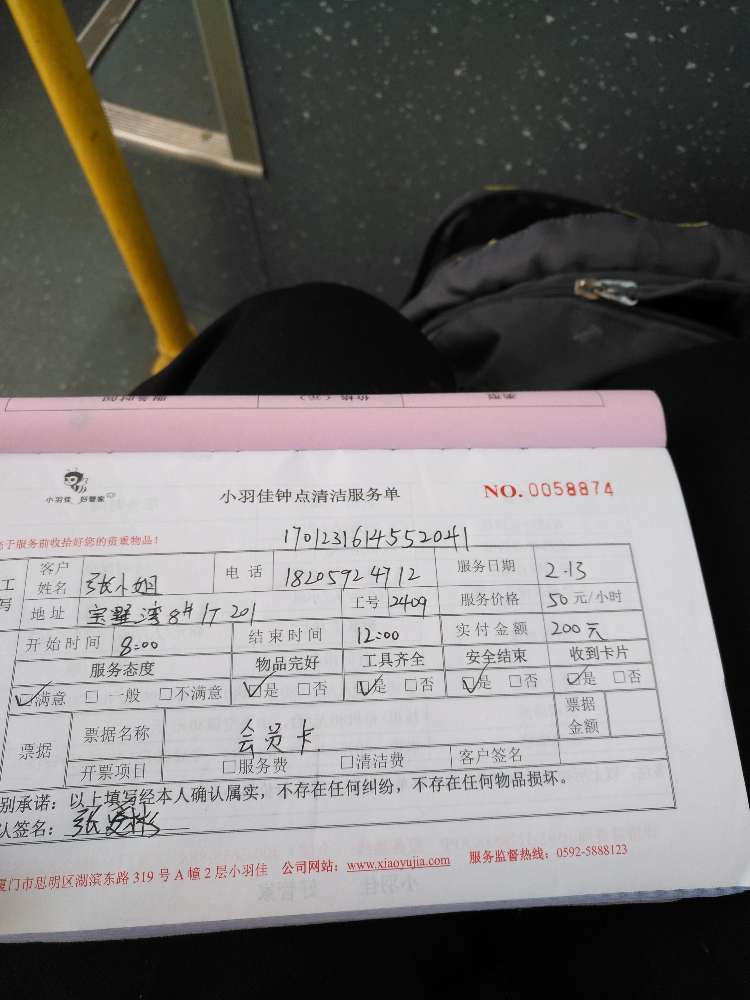 服务时间 价格（元） 类型
小羽佳 好管家 小羽佳钟点清洁服务单 NO.0058874
于服务前收拾好您的贵重物品！
1701231614552041
工 客户姓名 张小姐 电话 18205924712 服务日期 2.13
写 地址 宝墅湾8#17 201 工号 2409 服务价格 50元/小时
开始时间 8:00 结束时间 12:00 实付金额 200元
服务态度 物品完好 工具齐全 安全结束 收到卡片
☑满意 □一般 □不满意 ☑是 □否 ☑是 □否 ☑是 □否 ☑是 □否
票据 票据名称 会员卡 票据金额
开票项目 □服务费 □清洁费 客户签名
别承诺：以上填写经本人确认属实，不存在任何纠纷，不存在任何物品损坏。
认签名：张
厦门市思明区湖滨东路319号A幢2层小羽佳 公司网站：www.xiaoyujia.com 服务监督热线：0592-5888123